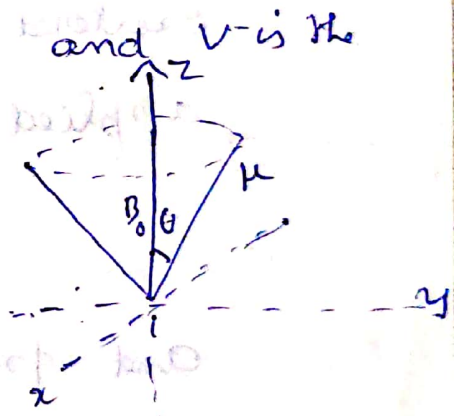 and ν-is the
z
μ
B₀ θ
y
x